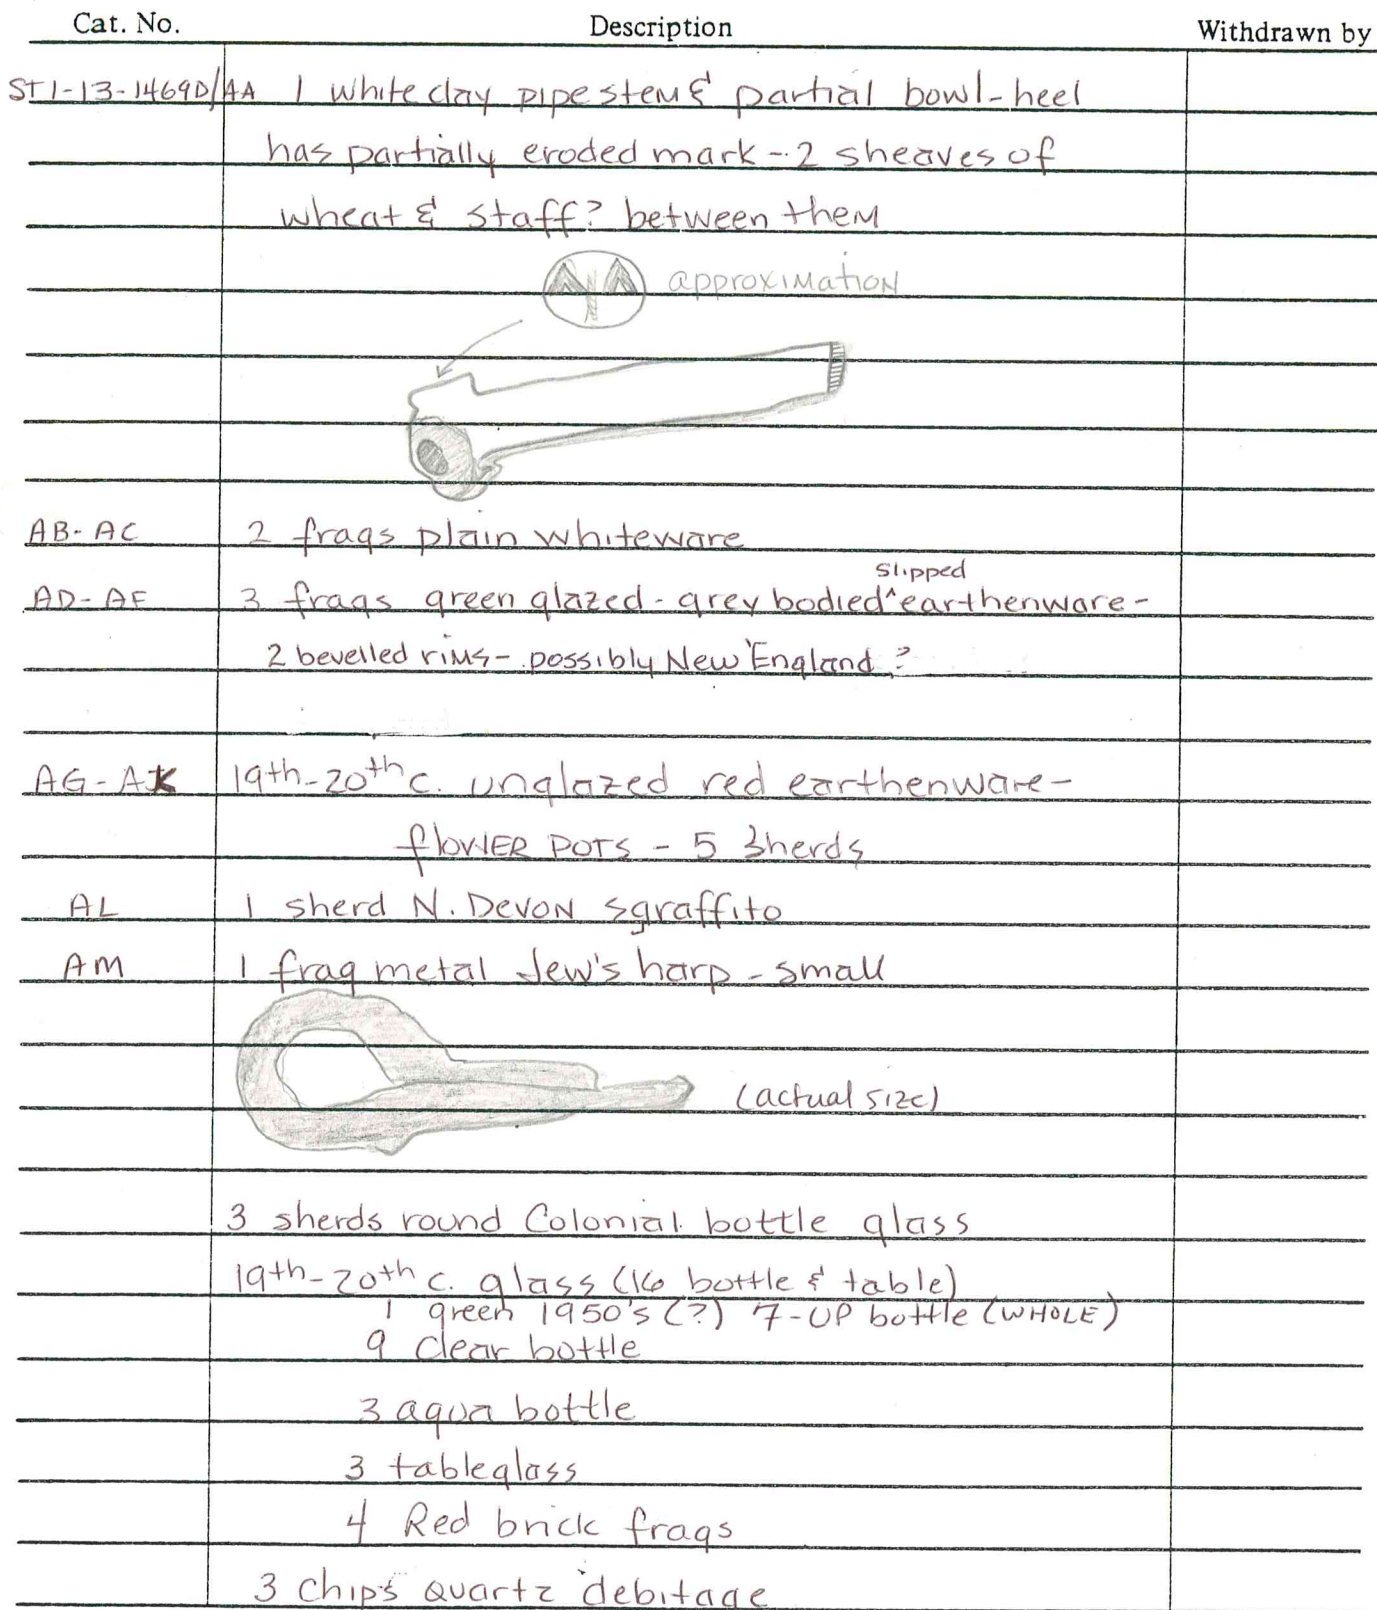 Cat. No. Description Withdrawn by
ST1-13-1469D/AA 1 white clay pipe stem & partial bowl-heel
has partially eroded mark - 2 sheaves of
wheat & staff? between them
approximation
AB-AC 2 frags plain whiteware
slipped
AD-AF 3 frags green glazed - grey bodied ^ earthenware-
2 bevelled rims - possibly New England?
AG-AK 19th-20th c. unglazed red earthenware-
flowER POTS - 5 sherds
AL 1 sherd N. Devon sgraffito
AM 1 frag metal Jew's harp - small
(actual size)
3 sherds round Colonial bottle glass
19th-20th c. glass (16 bottle & table)
1 green 1950's (?) 7-UP bottle (WHOLE)
9 clear bottle
3 aqua bottle
3 tableglass
4 Red brick frags
3 chips quartz debitage